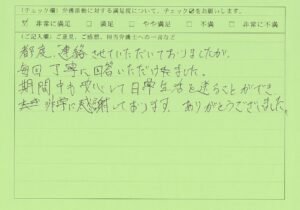 (チェック欄) 弁護活動に対する満足度について、チェック☑をお願いします。
☑ 非常に満足 □ 満足 □ やや満足 □ 不満 □ 非常に不満
(ご記入欄) ご意見、ご感想、担当弁護士への一言など
都度、連絡させていただいておりましたが、
毎回丁寧に回答いただけました。
期間中も安心して日常生活を送ることができ
非常に感謝しております。ありがとうございました。